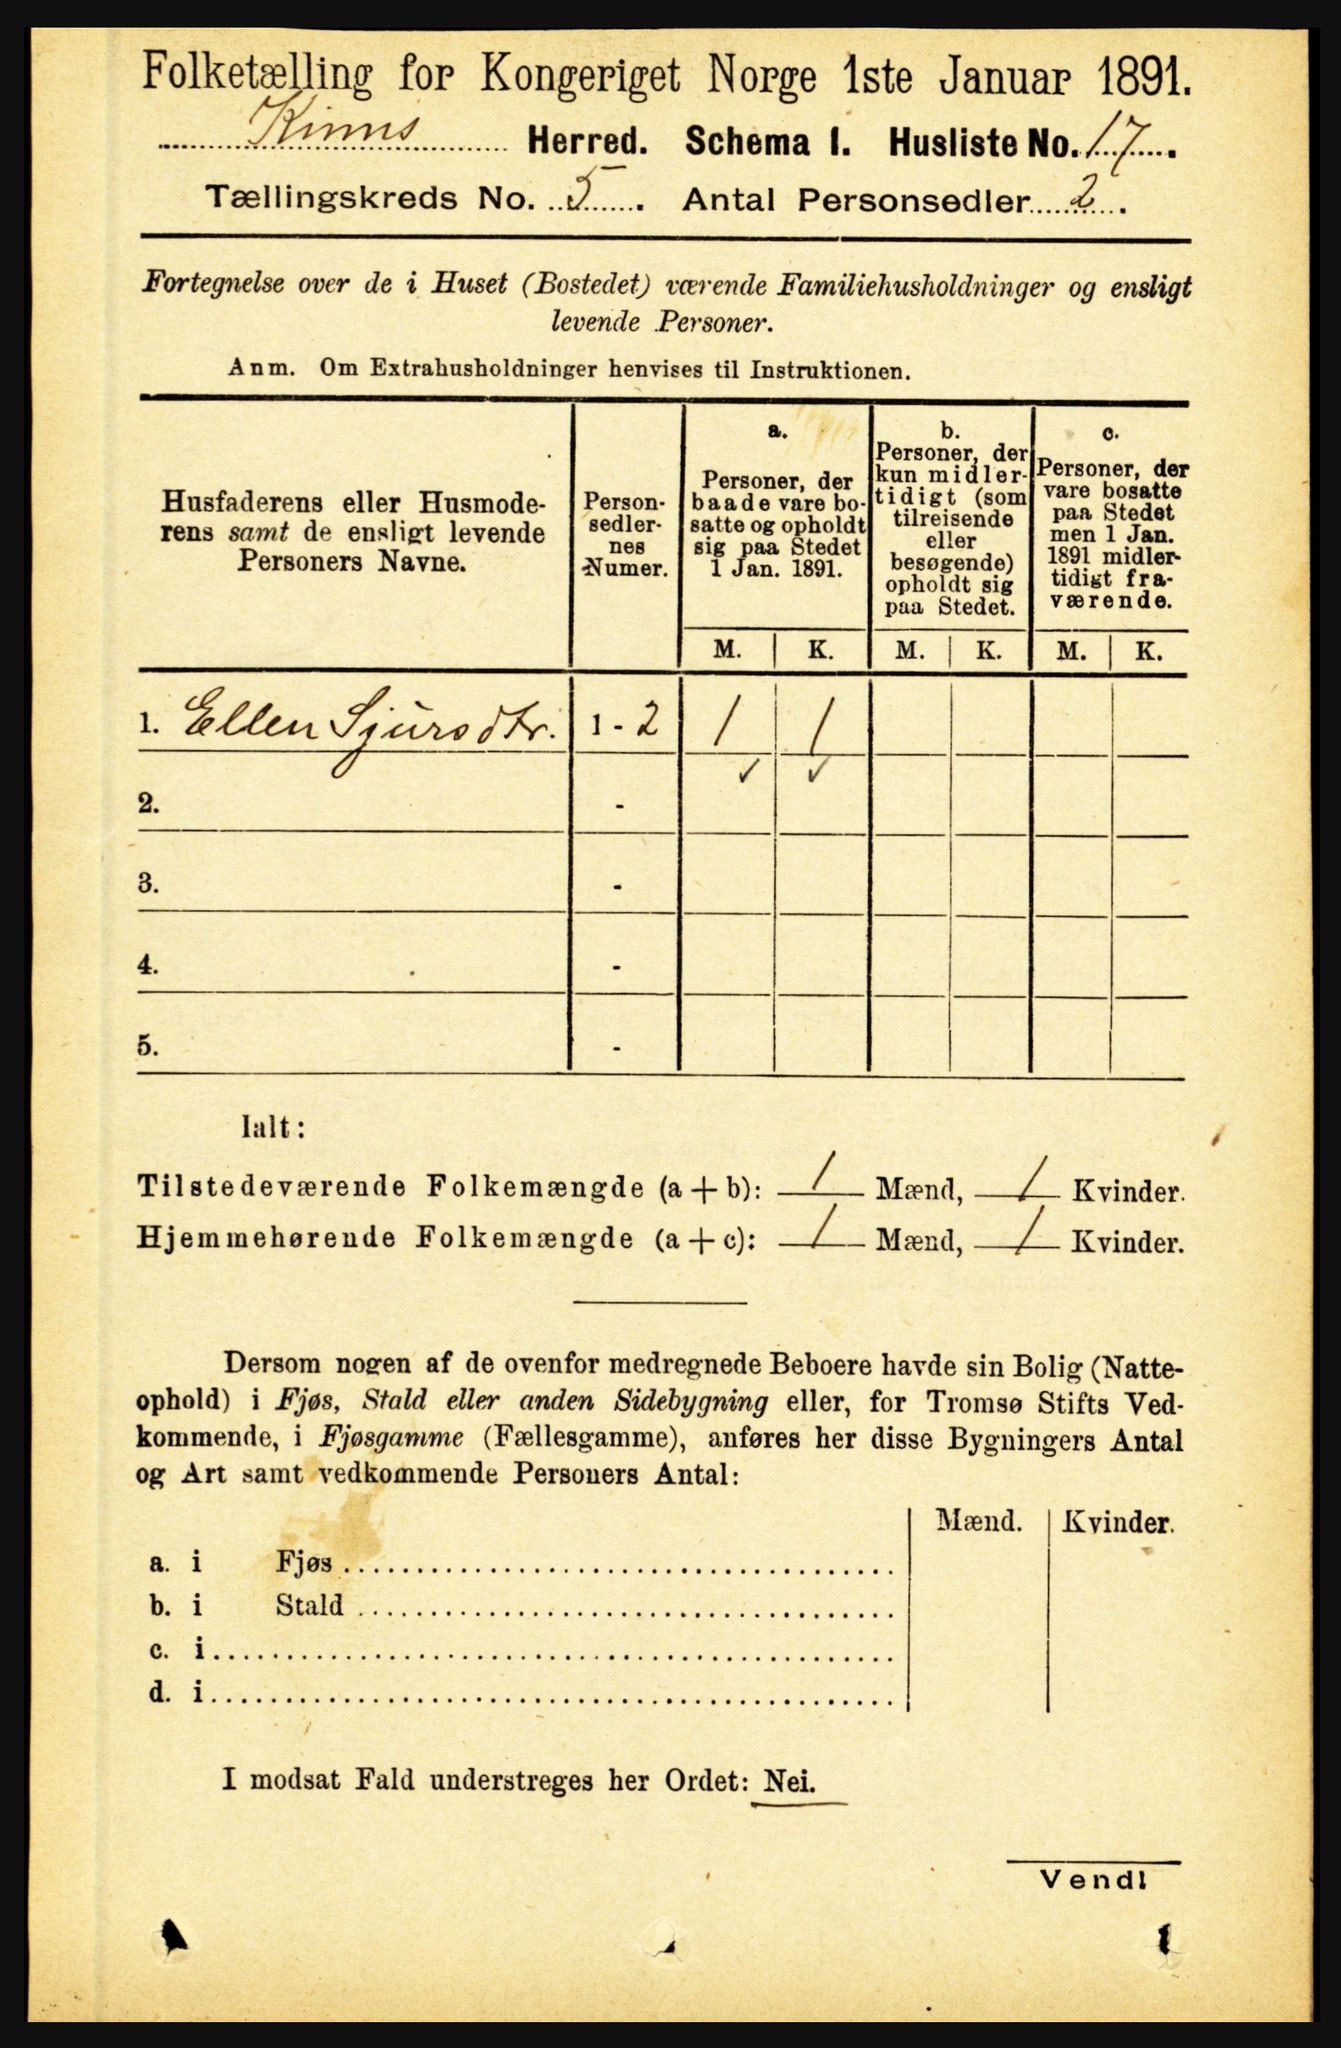 Folketælling for Kongeriget Norge 1ste Januar 1891.
Kinns Herred. Schema I. Husliste No. 17.
Tællingskreds No. 5. Antal Personsedler 2.
Fortegnelse over de i Huset (Bostedet) værende Familiehusholdninger og ensligt
levende Personer.
Anm. Om Extrahusholdninger henvises til Instruktionen.
Husfaderens eller Husmode-
rens samt de ensligt levende
Personers Navne.
Person-
sedler-
nes
Numer.
a.
Personer, der
baade vare bo-
satte og opholdt
sig paa Stedet
1 Jan. 1891.
b.
Personer, der
kun midler-
tidigt (som
tilreisende
eller
besøgende)
opholdt sig
paa Stedet.
c.
Personer, der
vare bosatte
paa Stedet
men 1 Jan.
1891 midler-
tidigt fra-
værende.
M. K. M. K. M. K.
1. Ellen Sjursdtr. 1 - 2 1 1
✓ ✓
2. -
3. -
4. -
5. -
Ialt:
Tilstedeværende Folkemængde (a + b): 1 Mænd, 1 Kvinder.
Hjemmehørende Folkemængde (a + c): 1 Mænd, 1 Kvinder.
Dersom nogen af de ovenfor medregnede Beboere havde sin Bolig (Natte-
ophold) i Fjøs, Stald eller anden Sidebygning eller, for Tromsø Stifts Ved-
kommende, i Fjøsgamme (Fællesgamme), anføres her disse Bygningers Antal
og Art samt vedkommende Personers Antal:
Mænd. Kvinder.
a. i Fjøs
b. i Stald
c. i
d. i
I modsat Fald understreges her Ordet: Nei.
Vend!